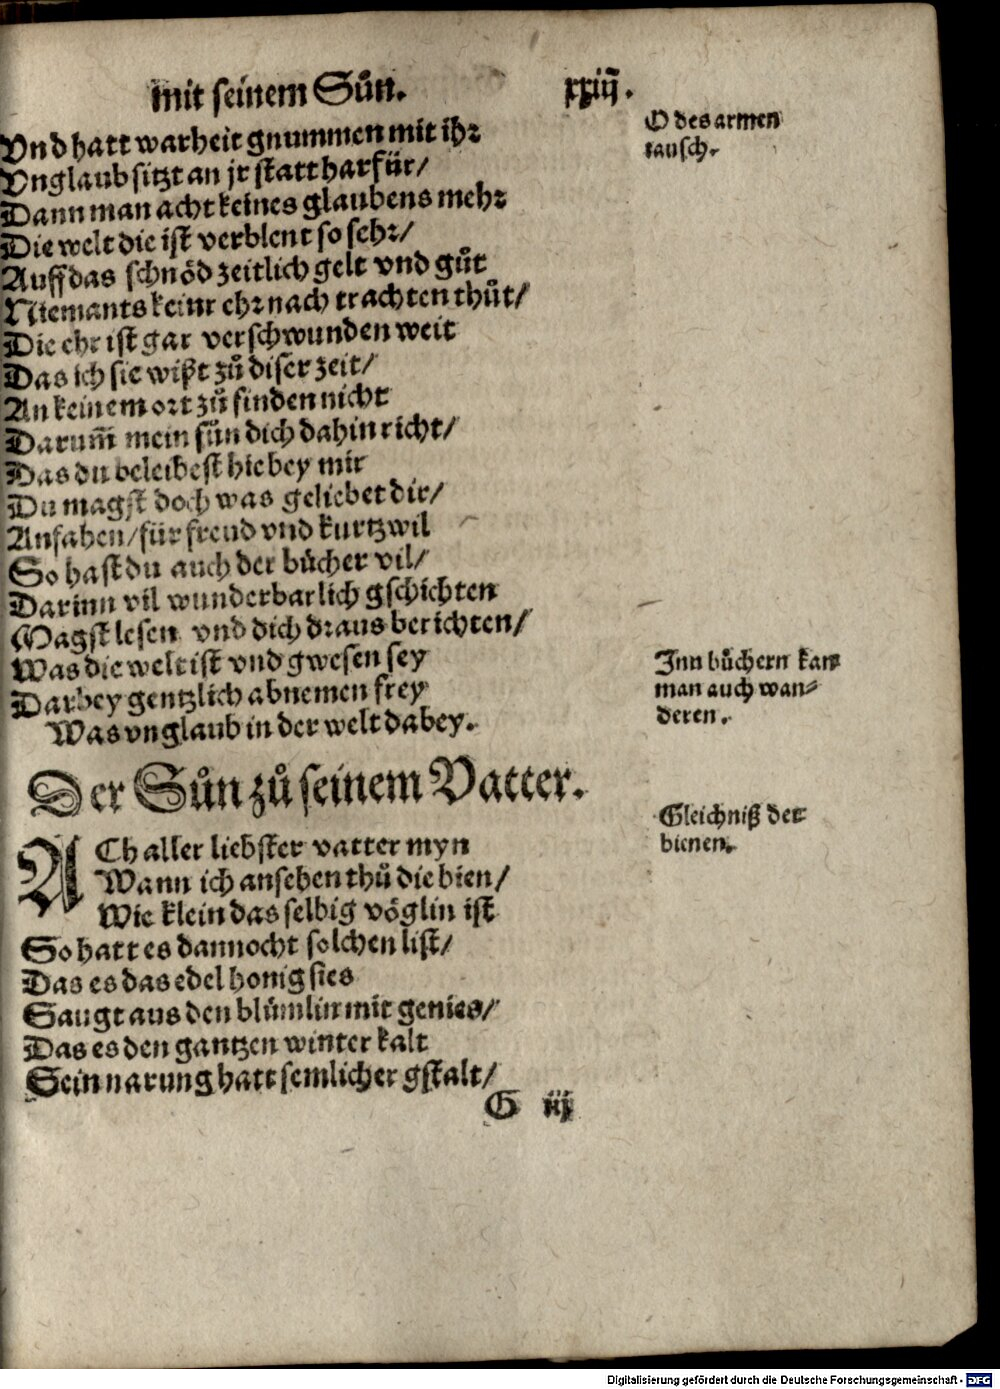 mit seinem Sůn. xxiij.
Vnd hatt warheit gnummen mit ihr
Vnglaub sitzt an jr statt harfür/
Dann man acht keines glaubens mehr
Die welt die ist verblent so sehr/
Auff das schnöd zeitlich gelt vnd gůt
Niemants keinr ehr nach trachten thůt/
Die ehr ist gar verschwunden weit
Das ich sie wißt zů diser zeit/
An keinem ort zů finden nicht
Darum̃ mein sůn dich dahin richt/
Das du beleibest hie bey mir
Du magst doch was geliebet dir/
Anfahen/für freud vnd kurtzwil
So hast du auch der bůcher vil/
Darinn vil wunderbarlich gschichten
Magst lesen vnd dich draus berichten/
Was die welt ist vnd gwesen sey
Darbey gentzlich abnemen frey
Was vnglaub in der welt dabey.
O des armen
tausch.
Inn bůchern kan
man auch wan-
deren.
Der Sůn zů seinem Vatter.
ACh aller liebster vatter myn
Wann ich ansehen thů die bien/
Wie klein das selbig vöglin ist
So hatt es dannocht solchen list/
Das es das edel honig sies
Saugt aus den blůmlin mit genies/
Das es den gantzen winter kalt
Sein narung hatt semlicher gstalt/
Gleichniß der
bienen.
G iij
Digitalisierung gefördert durch die Deutsche Forschungsgemeinschaft - DFG